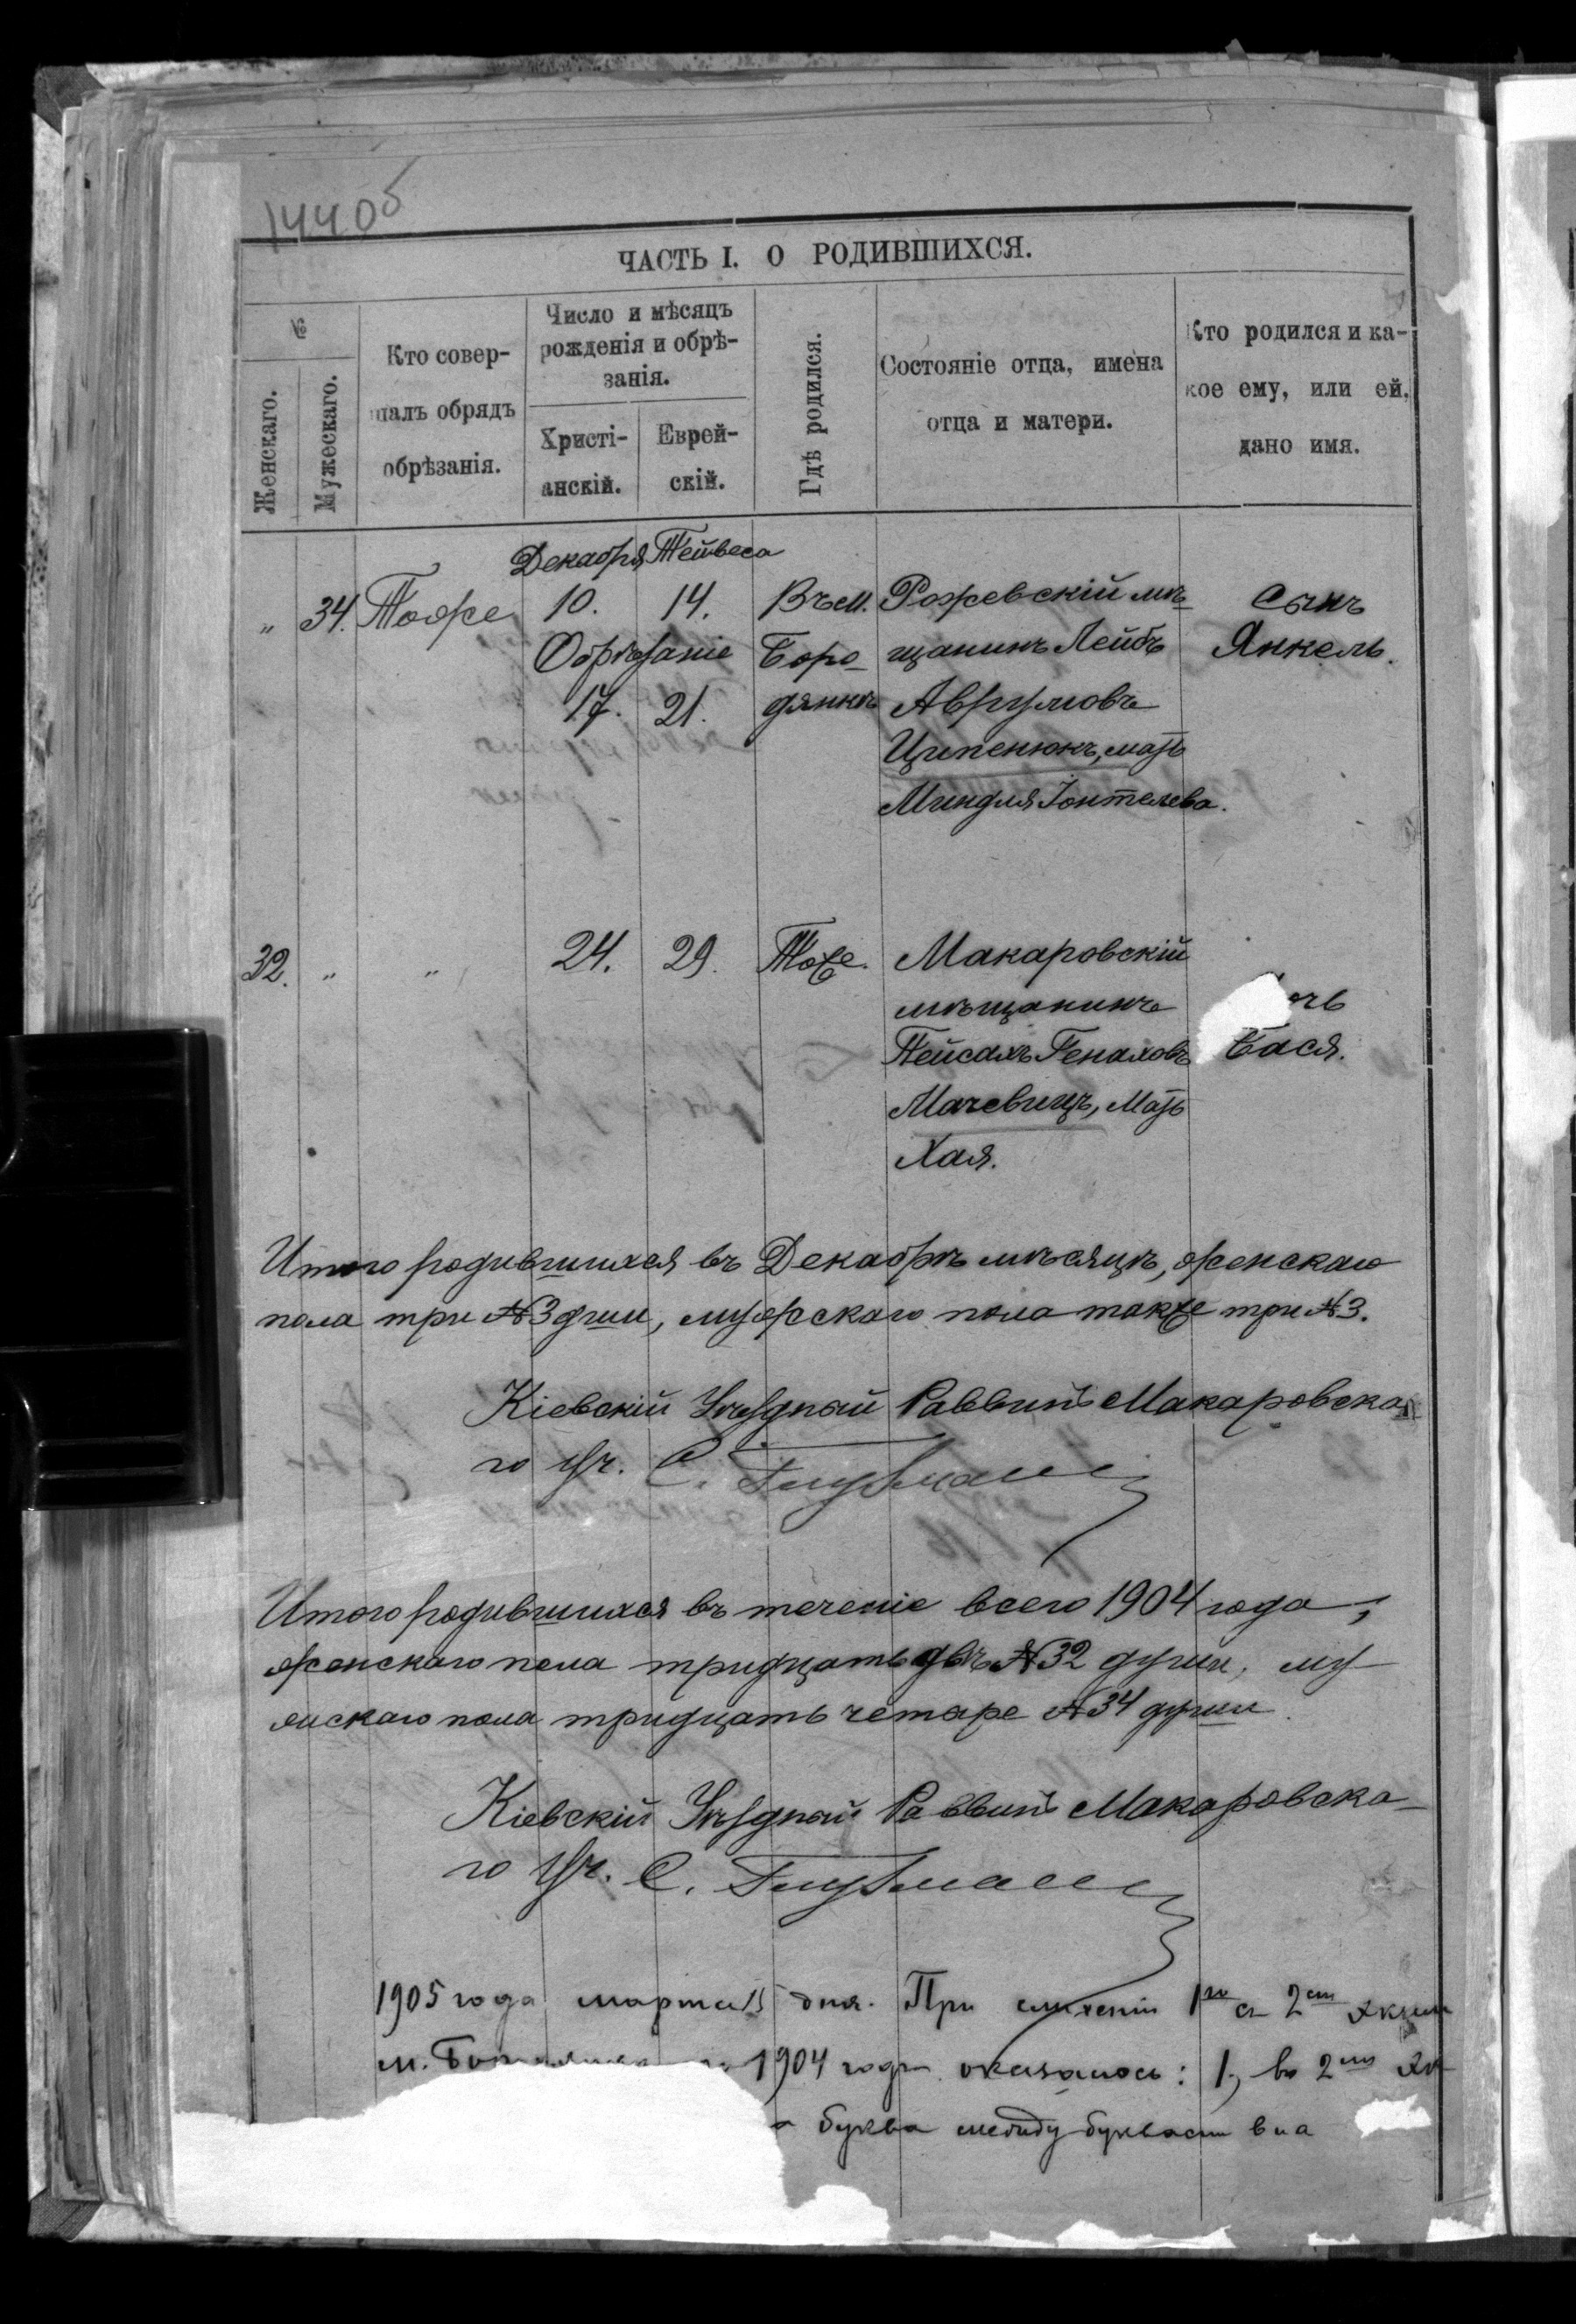 144об
ЧАСТЬ I. О РОДИВШИХСЯ.
№
Женскаго.
Мужескаго.
Кто совер-
шалъ обрядъ
обрѣзанія.
Число и мѣсяцъ
рожденія и обрѣ-
занія.
Христі-
анскій.
Еврей-
скій.
Гдѣ родился.
Состояніе отца, имена
отца и матери.
Кто родился и ка-
кое ему, или ей,
дано имя.
Декабря Тейвеса
„ 34. Тоже 10. 14. Въ м. Рожевскій мѣ- Сынъ
Обрѣзаніе Боро- щанинъ Лейбъ Янкель.
17. 21. дянкѣ Аврумовъ
Ципенюкъ, мать
Миндля Іонтелева.
32. „ „ 24. 29. Тоже. Макаровскій
мѣщанинъ очь
Пейсахъ Генаховъ Бася.
Мачевицъ, мать
Хая.
Итого родившихся въ Декабрѣ мѣсяцѣ, женскаго
пола три №3 души, мужскаго пола также три №3.
Кіевскій Уѣздный Раввинъ Макаровска-
го Уч. С.
Итого родившихся въ теченіе всего 1904 года,
женскаго пола тридцать двѣ №32 души, му-
жскаго пола тридцать четыре №34 души.
Кіевскій Уѣздный Раввинъ Макаровска-
го Уч. С.
1905 года марта 15 дня. При сличеніи 1го съ 2мъ экзем
м. 1904 года оказалось: 1, во 2мъ эк
буква между буквами в и а